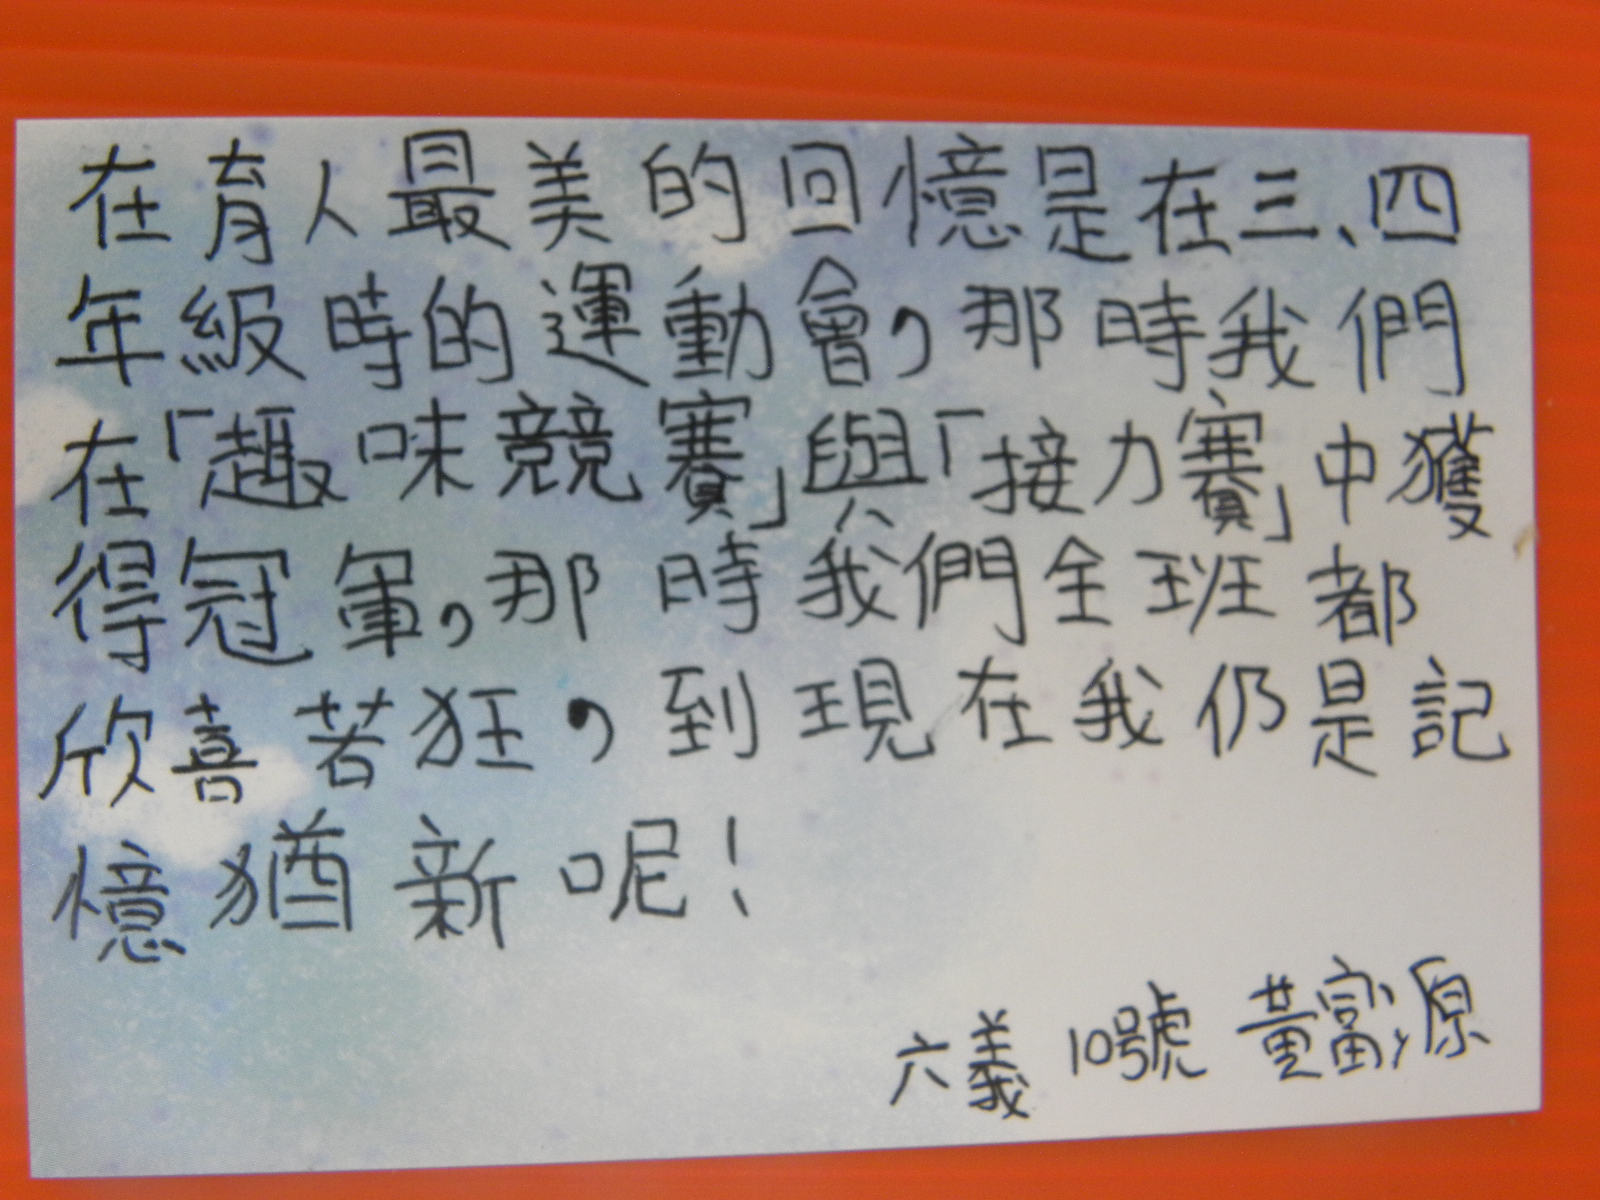 在育人最美的回憶是在三、四
年級時的運動會，那時我們
在「趣味競賽」與「接力賽」中獲
得冠軍，那時我們全班都
欣喜若狂，到現在我仍是記
憶猶新呢！
六義 10號 黃富源